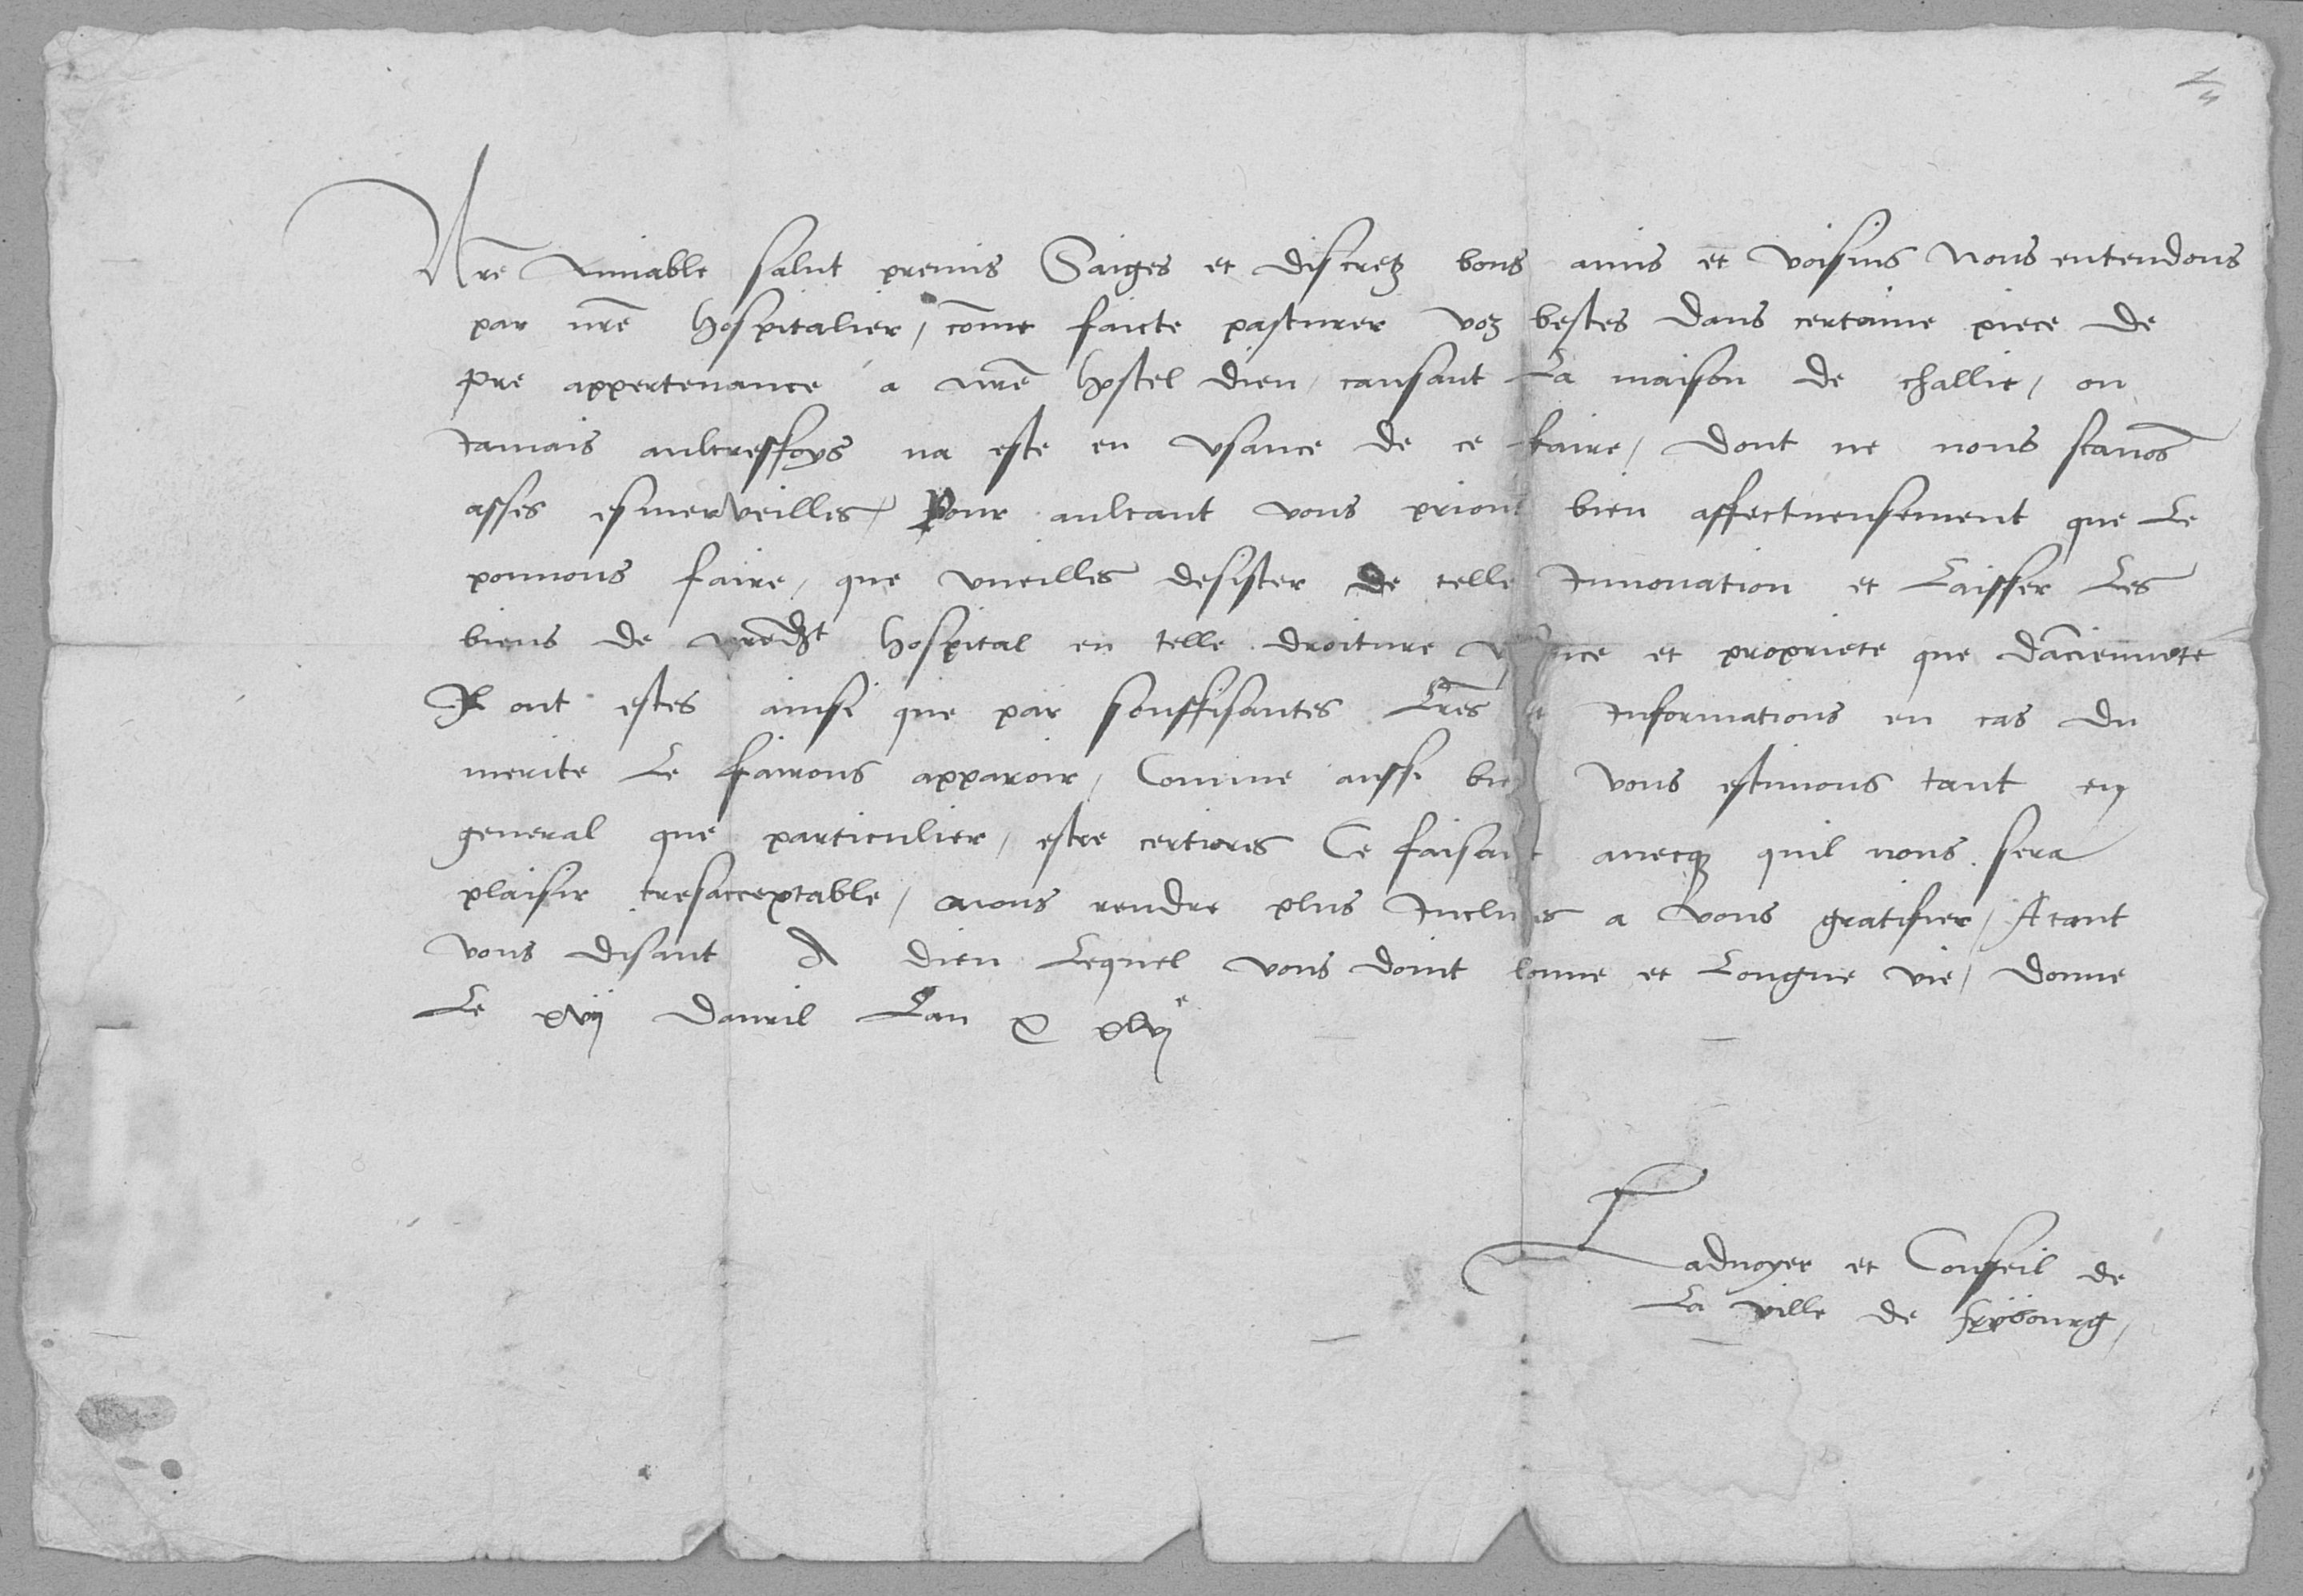 Nre Amiable salut premis Saiges et discretz bons amis et voisins Nous entendons
par nre hospitalier, come faicte pasturer voz bestes dans certaine piece de
pre appertenance a nre hostel dieu, causant La maison de challie, ou
Jamais aultresfoys na este en usance de ce faire, dont ne nous scauos
asses esmerveilles, Pour aultant vous prions bien affectueusement que Le
pouuons faire, que vueilles desister de telle Innouation et Laisser Les
biens de nredt hospital en telle droiture usance et propriete que danciennete
Il ont estes ainsi que par souffisantes Lres et Informations en cas du
merite Le fairons apparoir, Comme aussi bien vous estimons tant en
general que particulier, estre certiores Ce faisant auecq quil nous sera
plaisir tresacceptable, nous rendre plus Inclines a vous gratifier, Atant
vous disant A dieu Lequel vous doint bonne et Longue vie, donne
Le xvij dauril Lan xlvj
Laduoyer et Conseil de
La ville de frybourg,